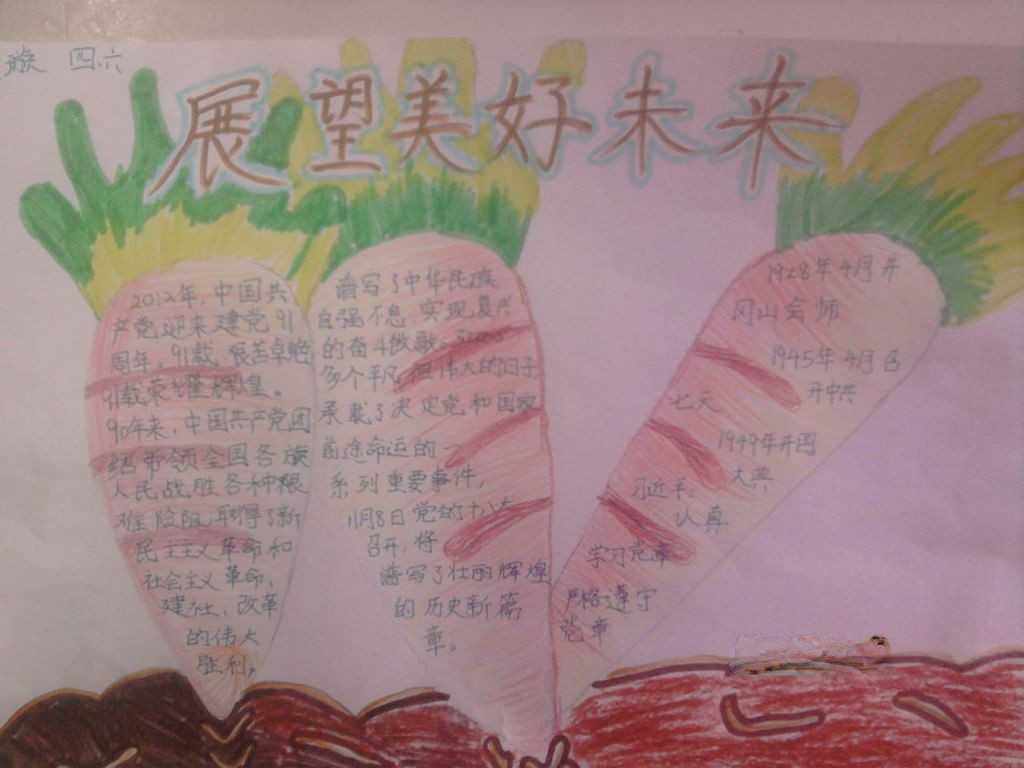 四六
展望美好未来
2012年，中国共
产党迎来建党91
周年。91载艰苦卓绝
91载荣耀辉煌。
90年来，中国共产党团
结带领全国各族
人民战胜各种艰
难险阻取得了新
民主主义革命和
社会主义革命、
建社、改革
的伟大
胜利。
谱写了中华民族
自强不息，实现复兴
的奋斗微歌。
多个平凡但伟大的日子
承载了决定党和国家
前途命运的一
系列重要事件，
11月8日党的十八大
召开，将
谱写了壮丽辉煌
的历史新篇
章。
1928年4月井
冈山会师
1945年4月召
开中共
七大
1949年开国
大典
习近平：
认真
学习党章
严格遵守
党章